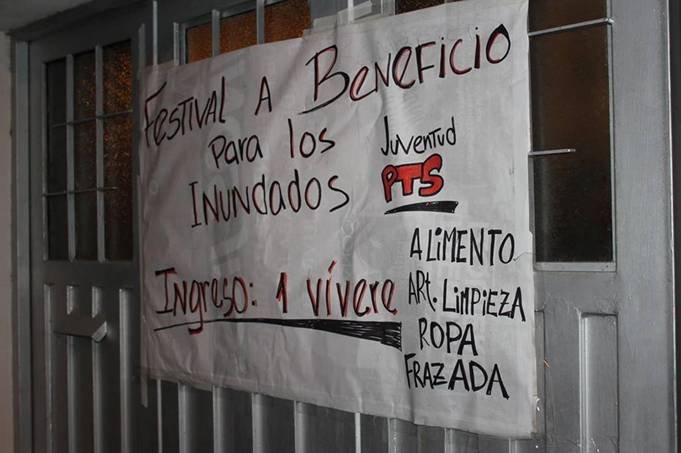 Festival A Beneficio
Para los
Inundados
Juventud
PTS
Ingreso: 1 vívere
ALIMENTO
ARt. LIMPIEZA
ROPA
FRAZADA